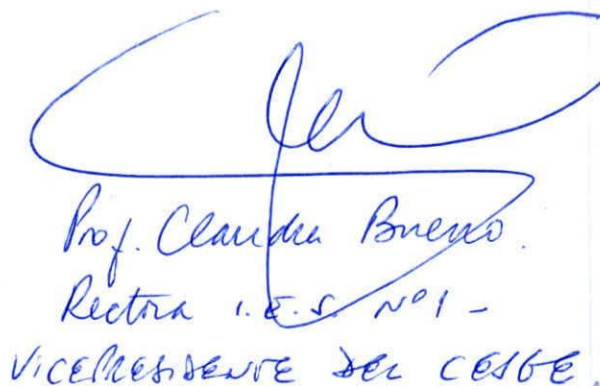 Prof. Claudia Bueno.
Rectora I.E.S. Nº1 -
VICEPRESIDENTE DEL CESGE.